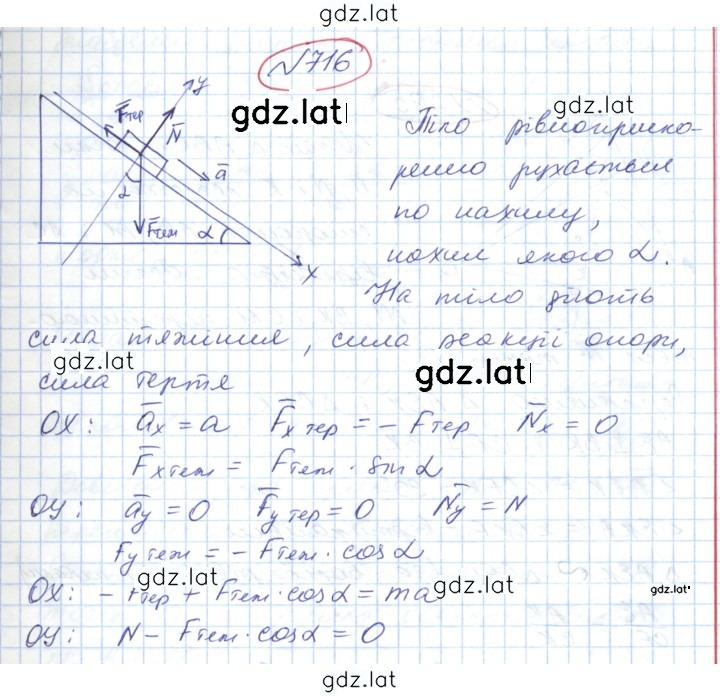 gdz.lat
№716
y
F̄тер
N̄
gdz.lat
gdz.lat
Тіло рівноприско-
ā
рено рухається
α
F̄теж
α
по нахилу,
x
нахил якого α.
На тіло діють
сила тяжіння, сила реакції опори,
gdz.lat
gdz.lat
сила тертя
OX: āx = a F̄x тер = - Fтер N̄x = 0
F̄x теж = Fтеж · sin α
OY: āy = 0 F̄y тер = 0 N̄y = N
Fy теж = - Fтеж · cos α
gdz.lat
gdz.lat
gdz.lat
OX: - Fтер + Fтеж · cos α = ma
OY: N - Fтеж · cos α = 0
gdz.lat